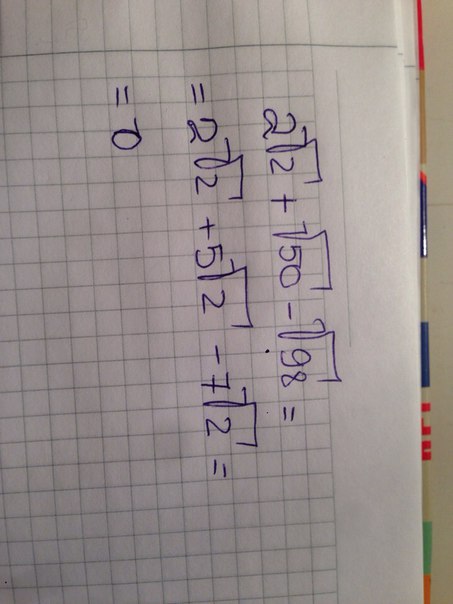 2√2 + √50 - √98 =
= 2√2 + 5√2 - 7√2 =
= 0